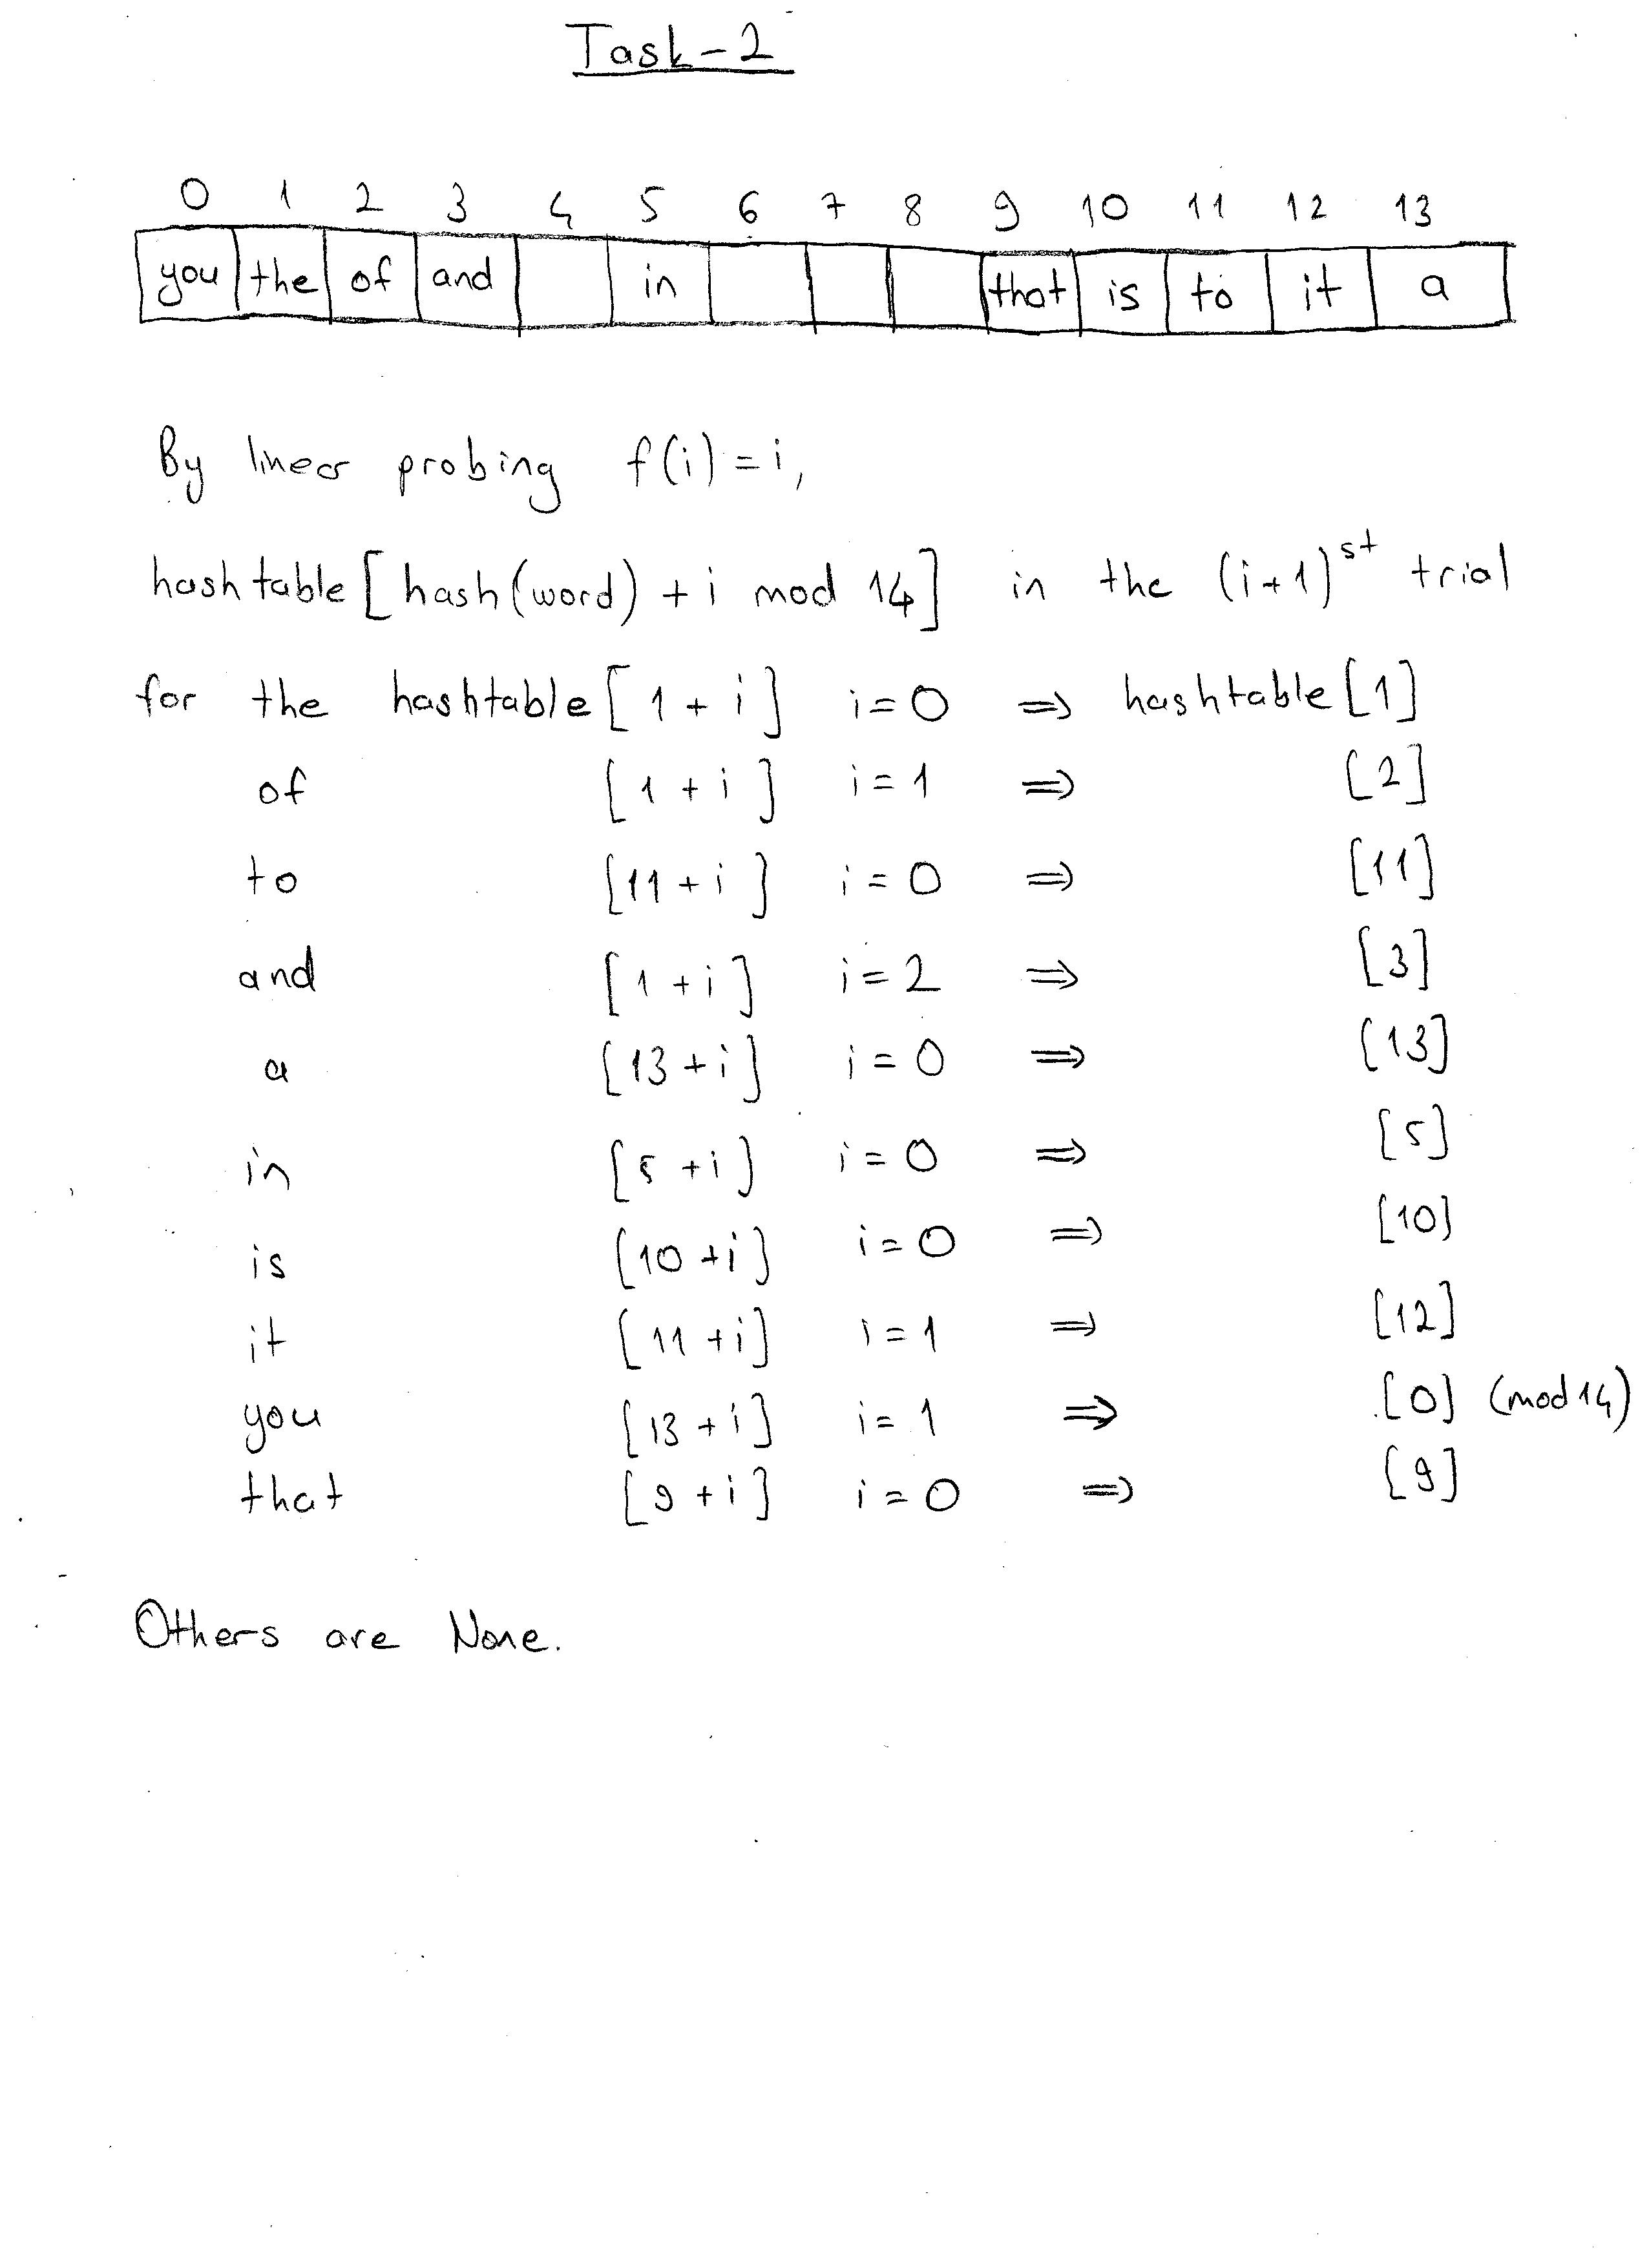 Task-2
0 1 2 3 4 5 6 7 8 9 10 11 12 13
you the of and in that is to it a
By linear probing f(i)=i,
hashtable[hash(word) + i mod 14] in the (i+1)st trial
for the hashtable[1 + i] i=0 ⇒ hashtable[1]
of [1 + i] i=1 ⇒ [2]
to [11 + i] i=0 ⇒ [11]
and [1 + i] i=2 ⇒ [3]
a [13 + i] i=0 ⇒ [13]
in [5 + i] i=0 ⇒ [5]
is [10 + i] i=0 ⇒ [10]
it [11 + i] i=1 ⇒ [12]
you [13 + i] i=1 ⇒ [0] (mod 14)
that [9 + i] i=0 ⇒ [9]
Others are None.